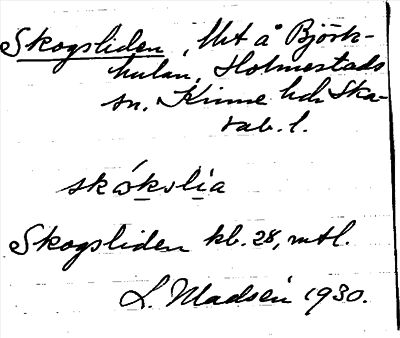 Skogsliden, lht å Björk-
kulan, Holmestads
sn. Kinne hd. Ska-
rab. l.
skóksli̱a
Skogsliden kb. 28, mtl.
L. Madsén 1930.